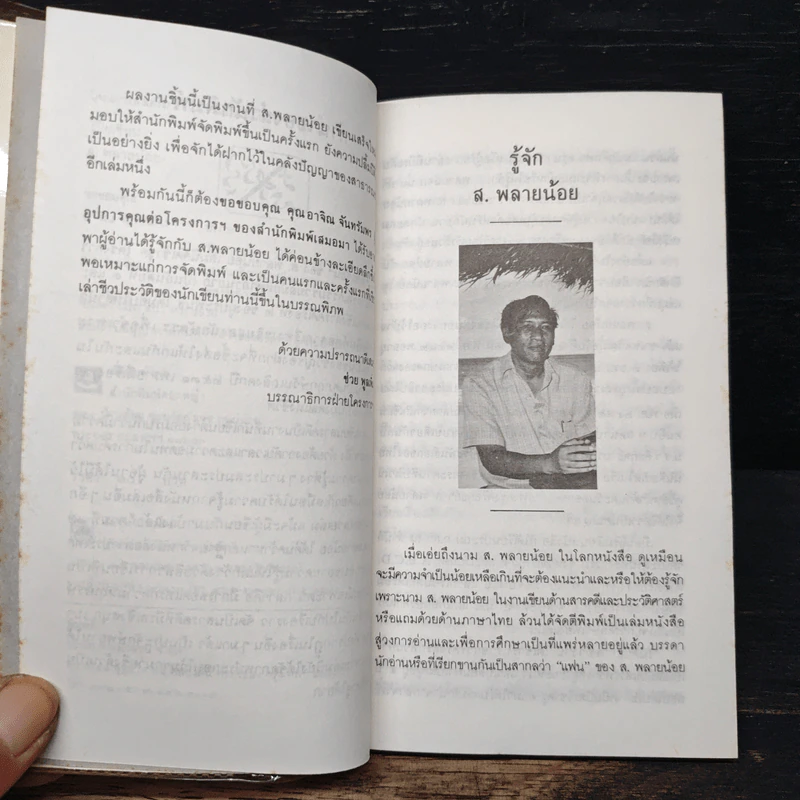 ผลงานชิ้นนี้เป็นงานที่ ส.พลายน้อย เขียนเสร็จ
มอบให้สำนักพิมพ์จัดพิมพ์ขึ้นเป็นครั้งแรก ยังความ
เป็นอย่างยิ่ง เพื่อจักได้ฝากไว้ในคลังปัญญาของ
อีกเล่มหนึ่ง
พร้อมกันนี้ก็ต้องขอขอบคุณ คุณอาจิณ จันทรัมพร
อุปการคุณต่อโครงการฯ ของสำนักพิมพ์เสมอมา
พาผู้อ่านได้รู้จักกับ ส.พลายน้อย ได้ค่อนข้างละเอียด
พอเหมาะแก่การจัดพิมพ์ และเป็นคนแรกและครั้งแรก
เล่าชีวประวัติของนักเขียนท่านนี้ขึ้นในบรรณพิภพ
ด้วยความปรารถนา
ช่วย
บรรณาธิการฝ่าย
รู้จัก
ส. พลายน้อย
เมื่อเอ่ยถึงนาม ส. พลายน้อย ในโลกหนังสือ ดูเหมือน
จะมีความจำเป็นน้อยเหลือเกินที่จะต้องแนะนำและหรือให้ต้องรู้จัก
เพราะนาม ส. พลายน้อย ในงานเขียนด้านสารคดีและประวัติศาสตร์
หรือแถมด้วยด้านภาษาไทย ล้วนได้จัดตีพิมพ์เป็นเล่มหนังสือ
สู่วงการอ่านและเพื่อการศึกษาเป็นที่แพร่หลายอยู่แล้ว บรรดา
นักอ่านหรือที่เรียกขานกันเป็นสากลว่า “แฟน” ของ ส. พลายน้อย